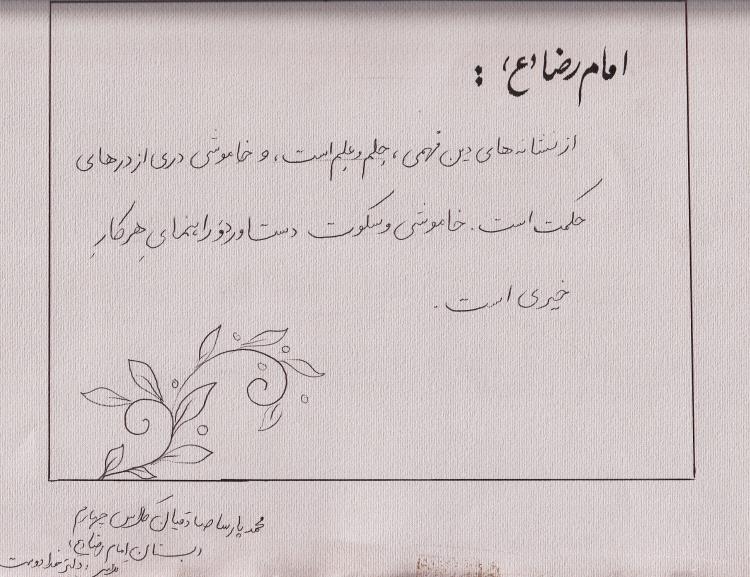 امام رضا (ع) :
از نشانه های دین فهمی ، حلم و علم است ، و خاموشی دری از درهای
حکمت است . خاموشی و سکوت دستاورد و راهنمای هر کارِ
خیری است .
محمد پارسا صادقیان کلاس چهارم
دبستان امام رضا (ع)